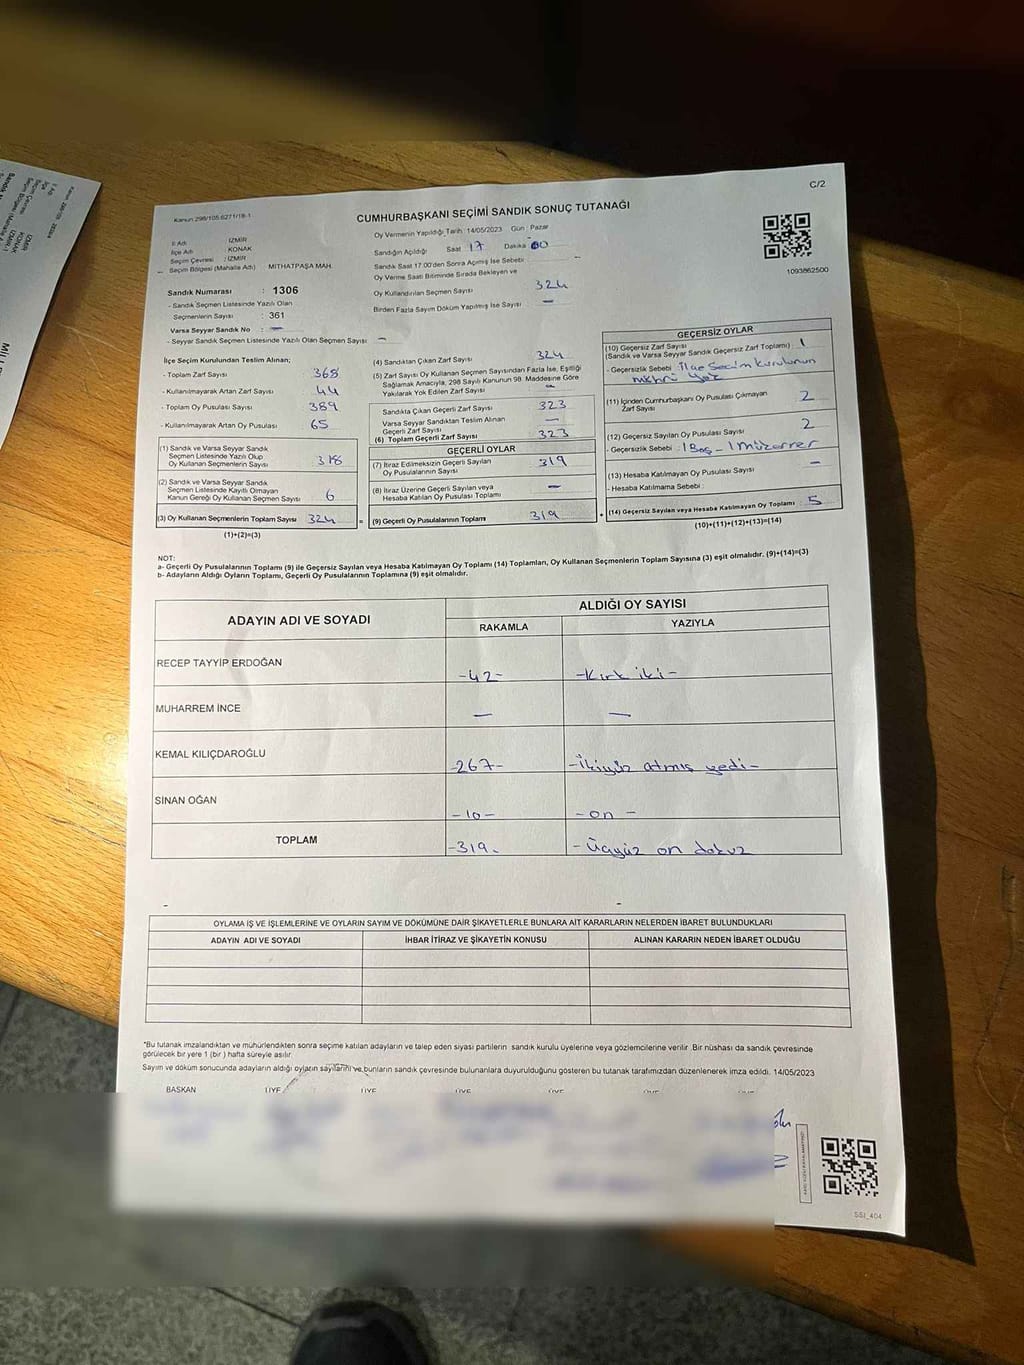 C/2
Kanun 298/105.6271/18-1
CUMHURBAŞKANI SEÇİMİ SANDIK SONUÇ TUTANAĞI
Oy Vermenin Yapıldığı Tarih: 14/05/2023 Gün : Pazar
İl Adı : İZMİR
İlçe Adı : KONAK
Seçim Çevresi : İZMİR
Seçim Bölgesi (Mahalle Adı) : MİTHATPAŞA MAH.
Sandığın Açıldığı Saat 17 Dakika 00
Sandık Saat 17.00'den Sonra Açılmış İse Sebebi : -
Oy Verme Saati Bitiminde Sırada Bekleyen ve
Oy Kullandırılan Seçmen Sayısı 324
Birden Fazla Sayım Döküm Yapılmış İse Sayısı : -
1093862500
Sandık Numarası : 1306
- Sandık Seçmen Listesinde Yazılı Olan
Seçmenlerin Sayısı : 361
Varsa Seyyar Sandık No : -
- Seyyar Sandık Seçmen Listesinde Yazılı Olan Seçmen Sayısı : -
İlçe Seçim Kurulundan Teslim Alınan;
- Toplam Zarf Sayısı 368
- Kullanılmayarak Artan Zarf Sayısı 44
- Toplam Oy Pusulası Sayısı 389
- Kullanılmayarak Artan Oy Pusulası 65
(1) Sandık ve Varsa Seyyar Sandık
Seçmen Listesinde Yazılı Olup
Oy Kullanan Seçmenlerin Sayısı 318
(2) Sandık ve Varsa Seyyar Sandık
Seçmen Listesinde Kayıtlı Olmayan
Kanun Gereği Oy Kullanan Seçmen Sayısı 6
(3) Oy Kullanan Seçmenlerin Toplam Sayısı 324 =
(1)+(2)=(3)
(4) Sandıktan Çıkan Zarf Sayısı 324
(5) Zarf Sayısı Oy Kullanan Seçmen Sayısından Fazla İse, Eşitliği
Sağlamak Amacıyla, 298 Sayılı Kanunun 98. Maddesine Göre
Yakılarak Yok Edilen Zarf Sayısı
Sandıkta Çıkan Geçerli Zarf Sayısı 323
Varsa Seyyar Sandıktan Teslim Alınan
Geçerli Zarf Sayısı -
(6) Toplam Geçerli Zarf Sayısı 323
GEÇERLİ OYLAR
(7) İtiraz Edilmeksizin Geçerli Sayılan
Oy Pusulalarının Sayısı 319
(8) İtiraz Üzerine Geçerli Sayılan veya
Hesaba Katılan Oy Pusulası Toplamı -
(9) Geçerli Oy Pusulalarının Toplamı 319 +
GEÇERSİZ OYLAR
(10) Geçersiz Zarf Sayısı
(Sandık ve Varsa Seyyar Sandık Geçersiz Zarf Toplamı) : 1
- Geçersizlik Sebebi : İlçe Seçim Kurulunun
mührü Yok
(11) İçinden Cumhurbaşkanı Oy Pusulası Çıkmayan
Zarf Sayısı 2
(12) Geçersiz Sayılan Oy Pusulası Sayısı 2
- Geçersizlik Sebebi : 1 Boş - 1 Müzarrer
(13) Hesaba Katılmayan Oy Pusulası Sayısı -
- Hesaba Katılmama Sebebi :
(14) Geçersiz Sayılan veya Hesaba Katılmayan Oy Toplamı : 5
(10)+(11)+(12)+(13)=(14)
NOT:
a- Geçerli Oy Pusulalarının Toplamı (9) ile Geçersiz Sayılan veya Hesaba Katılmayan Oy Toplamı (14) Toplamları, Oy Kullanan Seçmenlerin Toplam Sayısına (3) eşit olmalıdır. (9)+(14)=(3)
b- Adayların Aldığı Oyların Toplamı, Geçerli Oy Pusulalarının Toplamına (9) eşit olmalıdır.
ADAYIN ADI VE SOYADI
ALDIĞI OY SAYISI
RAKAMLA YAZIYLA
RECEP TAYYİP ERDOĞAN -42- -Kırk iki-
MUHARREM İNCE - -
KEMAL KILIÇDAROĞLU -267- -İkiyüz atmış yedi-
SİNAN OĞAN -10- -on -
TOPLAM -319- -Üçyüz on dokuz
OYLAMA İŞ VE İŞLEMLERİNE VE OYLARIN SAYIM VE DÖKÜMÜNE DAİR ŞİKAYETLERLE BUNLARA AİT KARARLARIN NELERDEN İBARET BULUNDUKLARI
ADAYIN ADI VE SOYADI İHBAR İTİRAZ VE ŞİKAYETİN KONUSU ALINAN KARARIN NEDEN İBARET OLDUĞU
"Bu tutanak imzalandıktan ve mühürlendikten sonra seçime katılan adayların ve talep eden siyasi partilerin sandık kurulu üyelerine veya gözlemcilerine verilir. Bir nüshası da sandık çevresinde
görülecek bir yere 1 (bir) hafta süreyle asılır.
Sayım ve döküm sonucunda adayların aldığı oyların sayılarını ve bunların sandık çevresinde bulunanlara duyurulduğunu gösteren bu tutanak tarafımızdan düzenlenerek imza edildi. 14/05/2023
BAŞKAN ÜYE ÜYE ÜYE ÜYE ÜYE
SSI_404